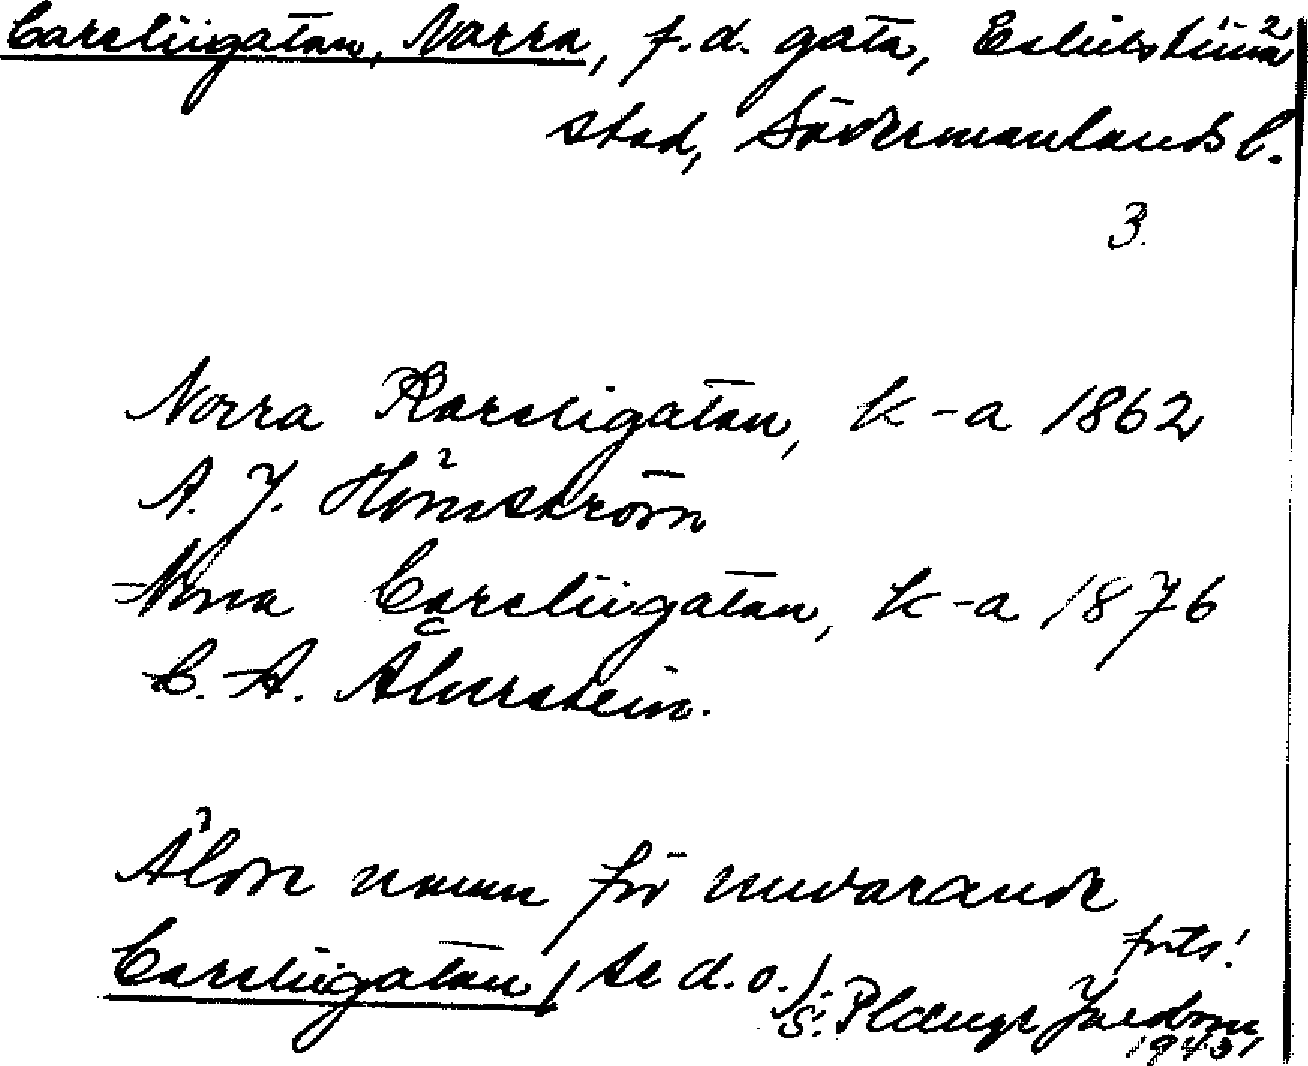 Careliigatan, Norra, f.d. gata, Eskilstuna
stad, Södermanlands l.
3.
Norra Kareligatan, k-a 1862
A. J. Hörnström
Norra Careliigatan, k-a 1876
C. A. Ålverstein.
Äldre namn för nuvarande
Careliigatan (se d.o.)
forts!
S. Plænge Jacobson
1943